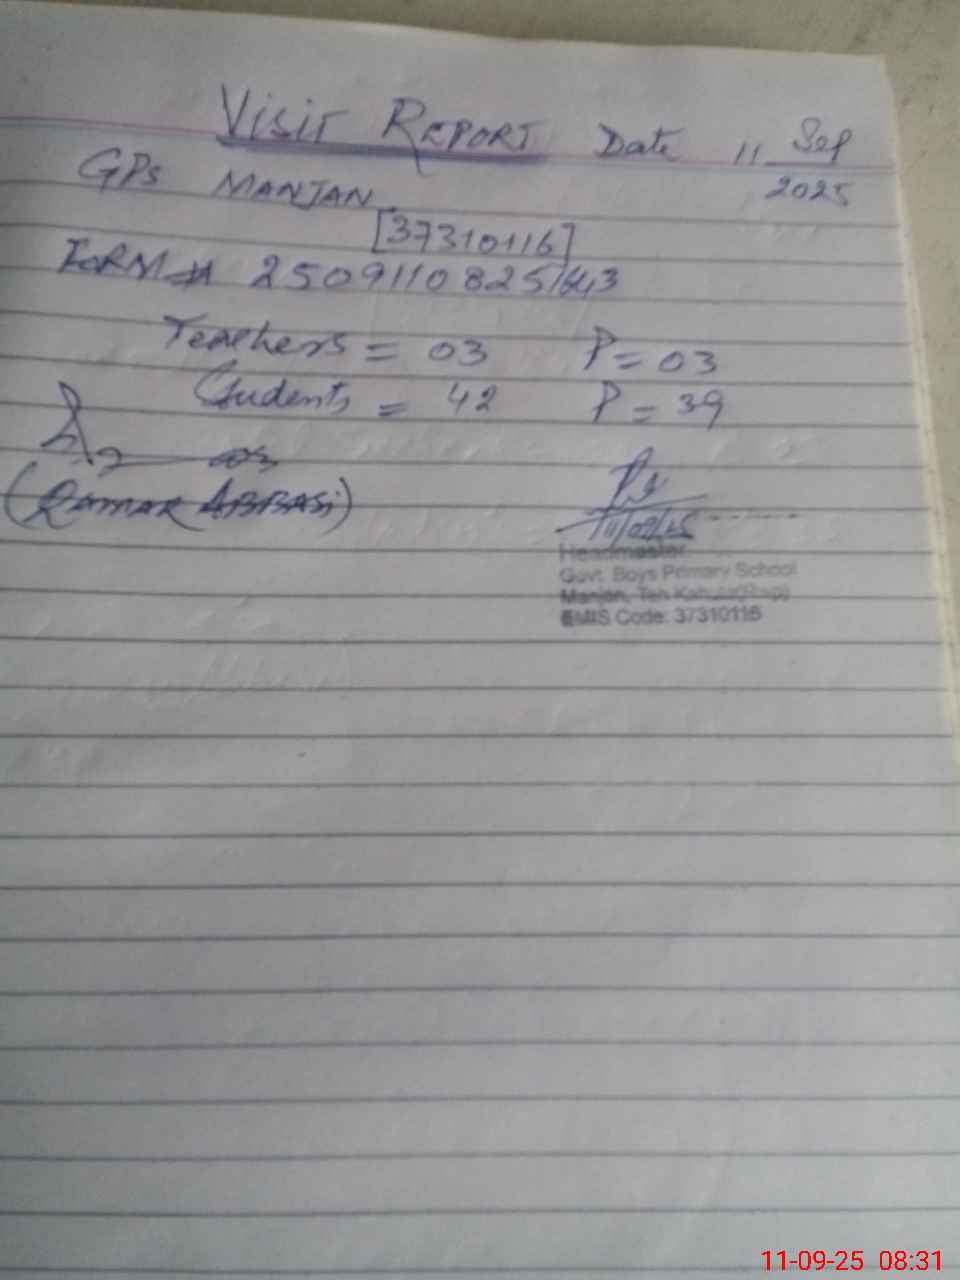 VISIT REPORT Date 11 Sep
2025
GPS MANJAN
[37310116]
FORM # 2509110825
Teachers = 03 P = 03
Students = 42 P = 39
(Qamar ABBASi)
11/09/25
Headmaster
Govt. Boys Primary School
Manjan, Teh Kahuta(Rwp)
EMIS Code: 37310116
11-09-25 08:31